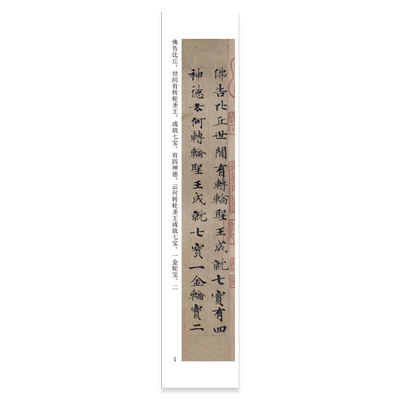 佛告比丘世間有轉輪聖王成就七寶有四
神德云何轉輪聖王成就七寶一金輪寶二
佛告比丘，世间有转轮圣王，成就七宝，有四神德，云何转轮圣王成就七宝，一金轮宝，二
1